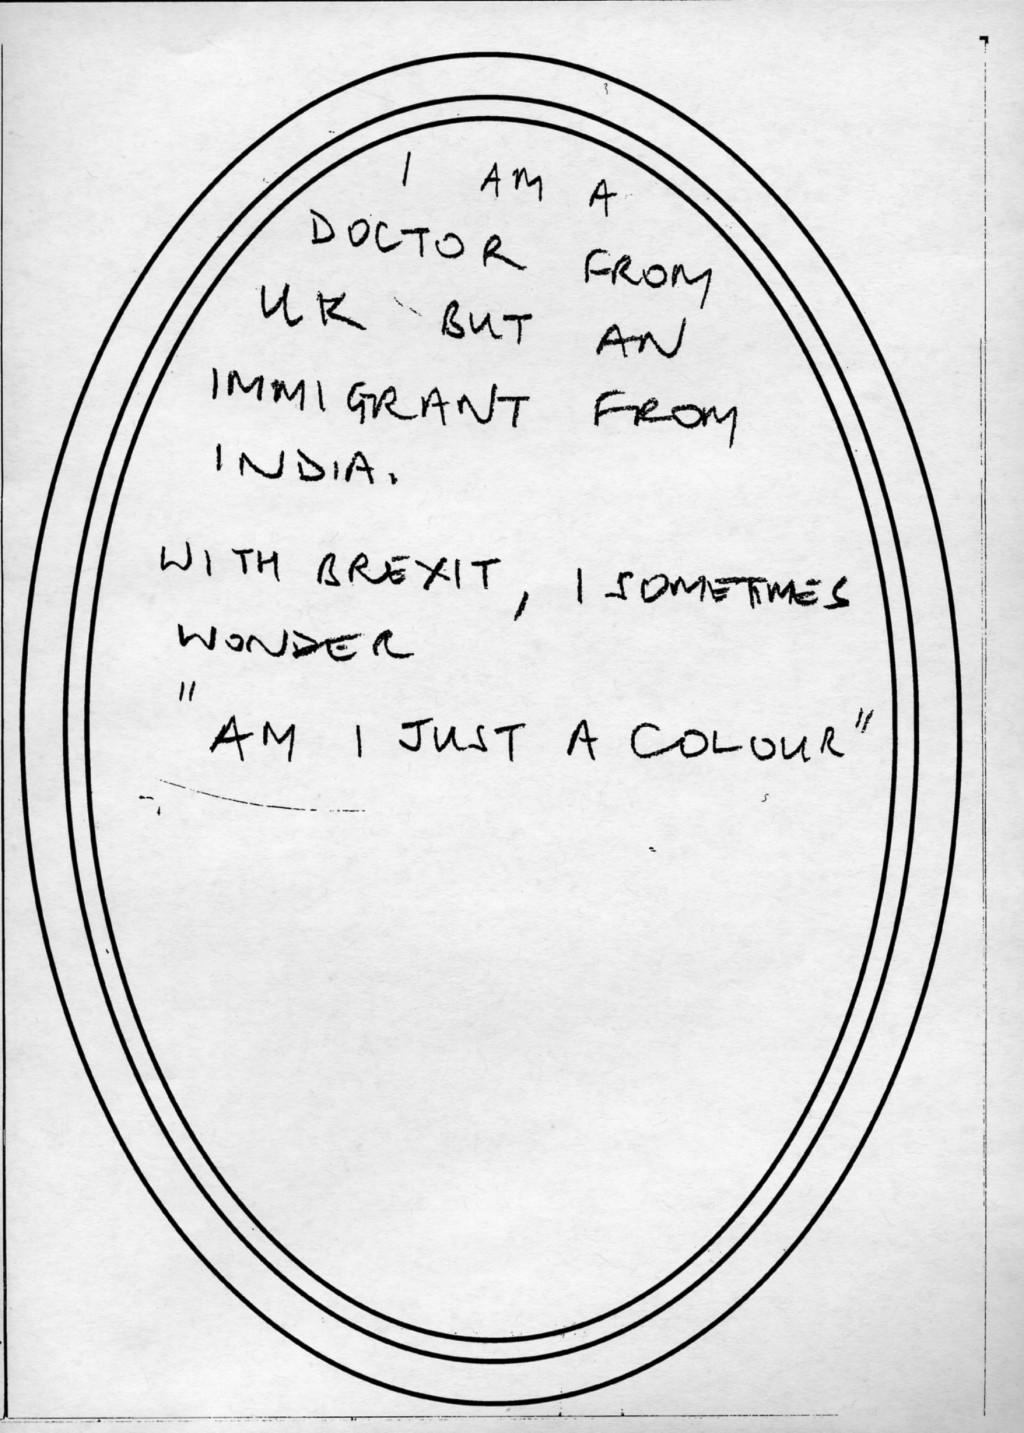 I AM A
DOCTOR FROM
UK BUT AN
IMMIGRANT FROM
INDIA.
WITH BREXIT, I SOMETIMES
WONDER
"AM I JUST A COLOUR"